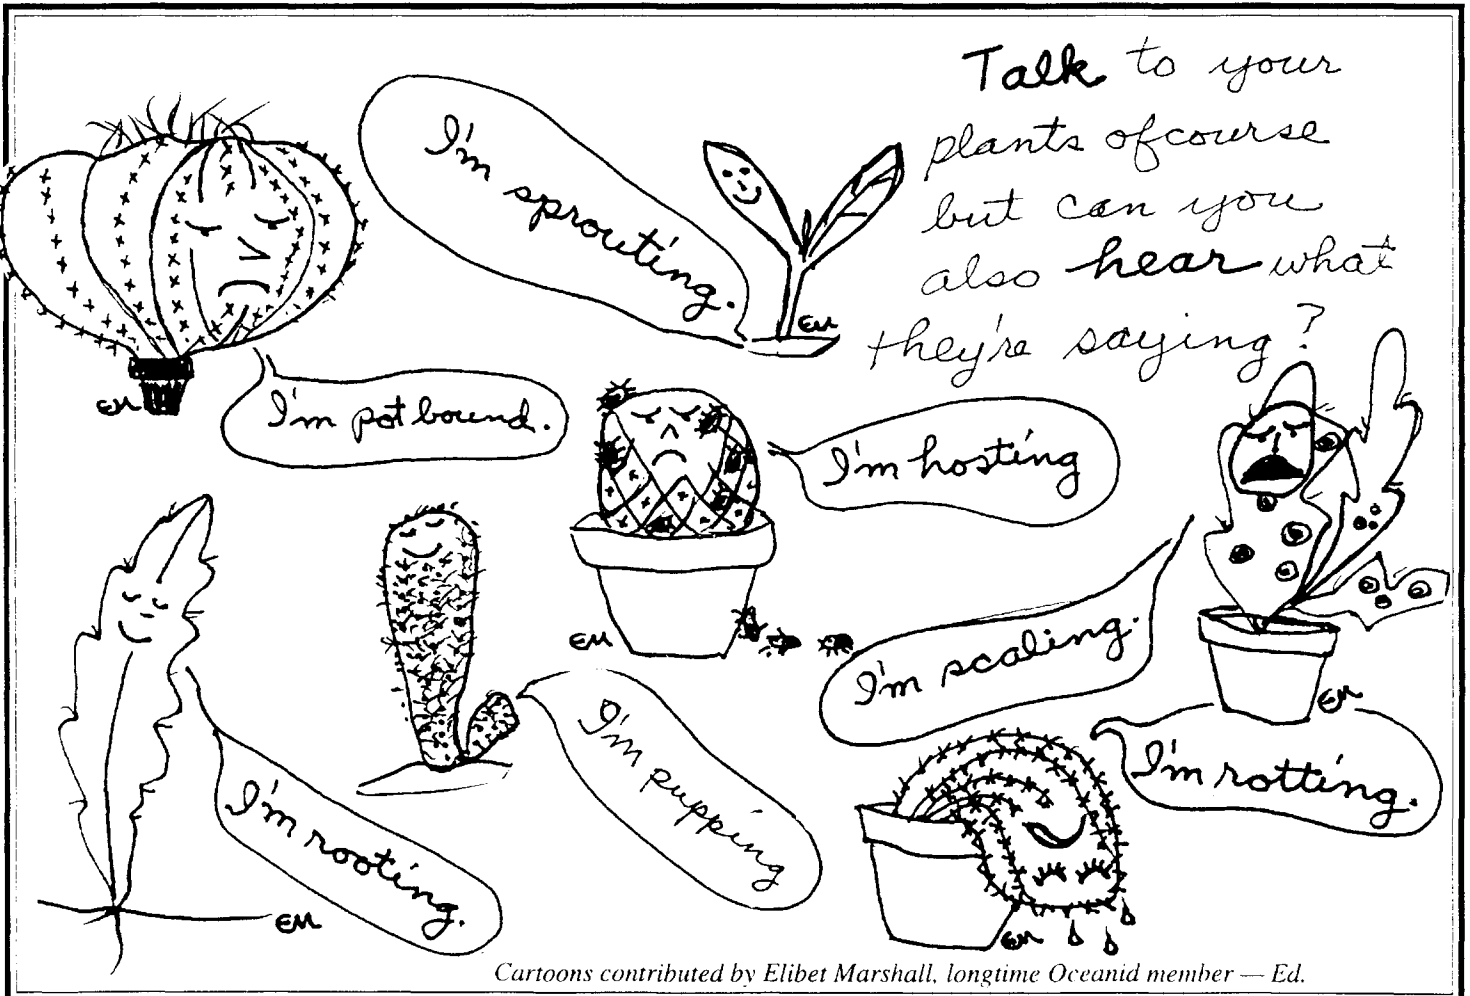 Talk to your
plants ofcourse
but can you
also hear what
they're saying?
I'm sprouting.
EM
I'm pot bound.
EM
I'm hosting
EM
I'm scaling.
EM
I'm rooting.
EM
I'm pupping
I'm rotting.
EM
Cartoons contributed by Elibet Marshall, longtime Oceanid member — Ed.